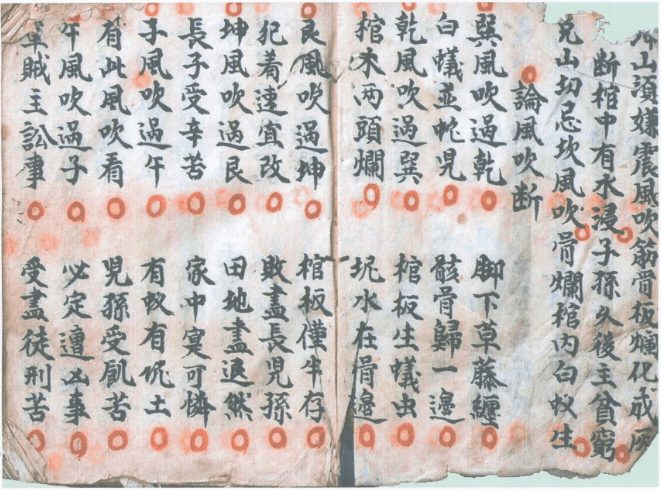 山須嫌震風吹筋骨板爛化成灰
断棺中有水浸子孫久後主貧窮
兌山切忌坎風吹骨爛棺内白蚁生
論風吹断
巽風吹過乾 脚下草藤纏
白蟻並蛇兒 骸骨歸一邊
乾風吹過巽 棺板生蟻虫
棺木两頭爛 坭水在骨邊
艮風吹過坤 棺板僅半存
犯着速宜改 敗盡長兒孫
坤風吹過艮 田地盡退然
長子受辛苦 家中寔可憐
子風吹過午 有蚁有坭土
有此風吹看 兒孫受飢苦
午風吹過子 必定遭凶事
賊主訟事 受盡徒刑苦